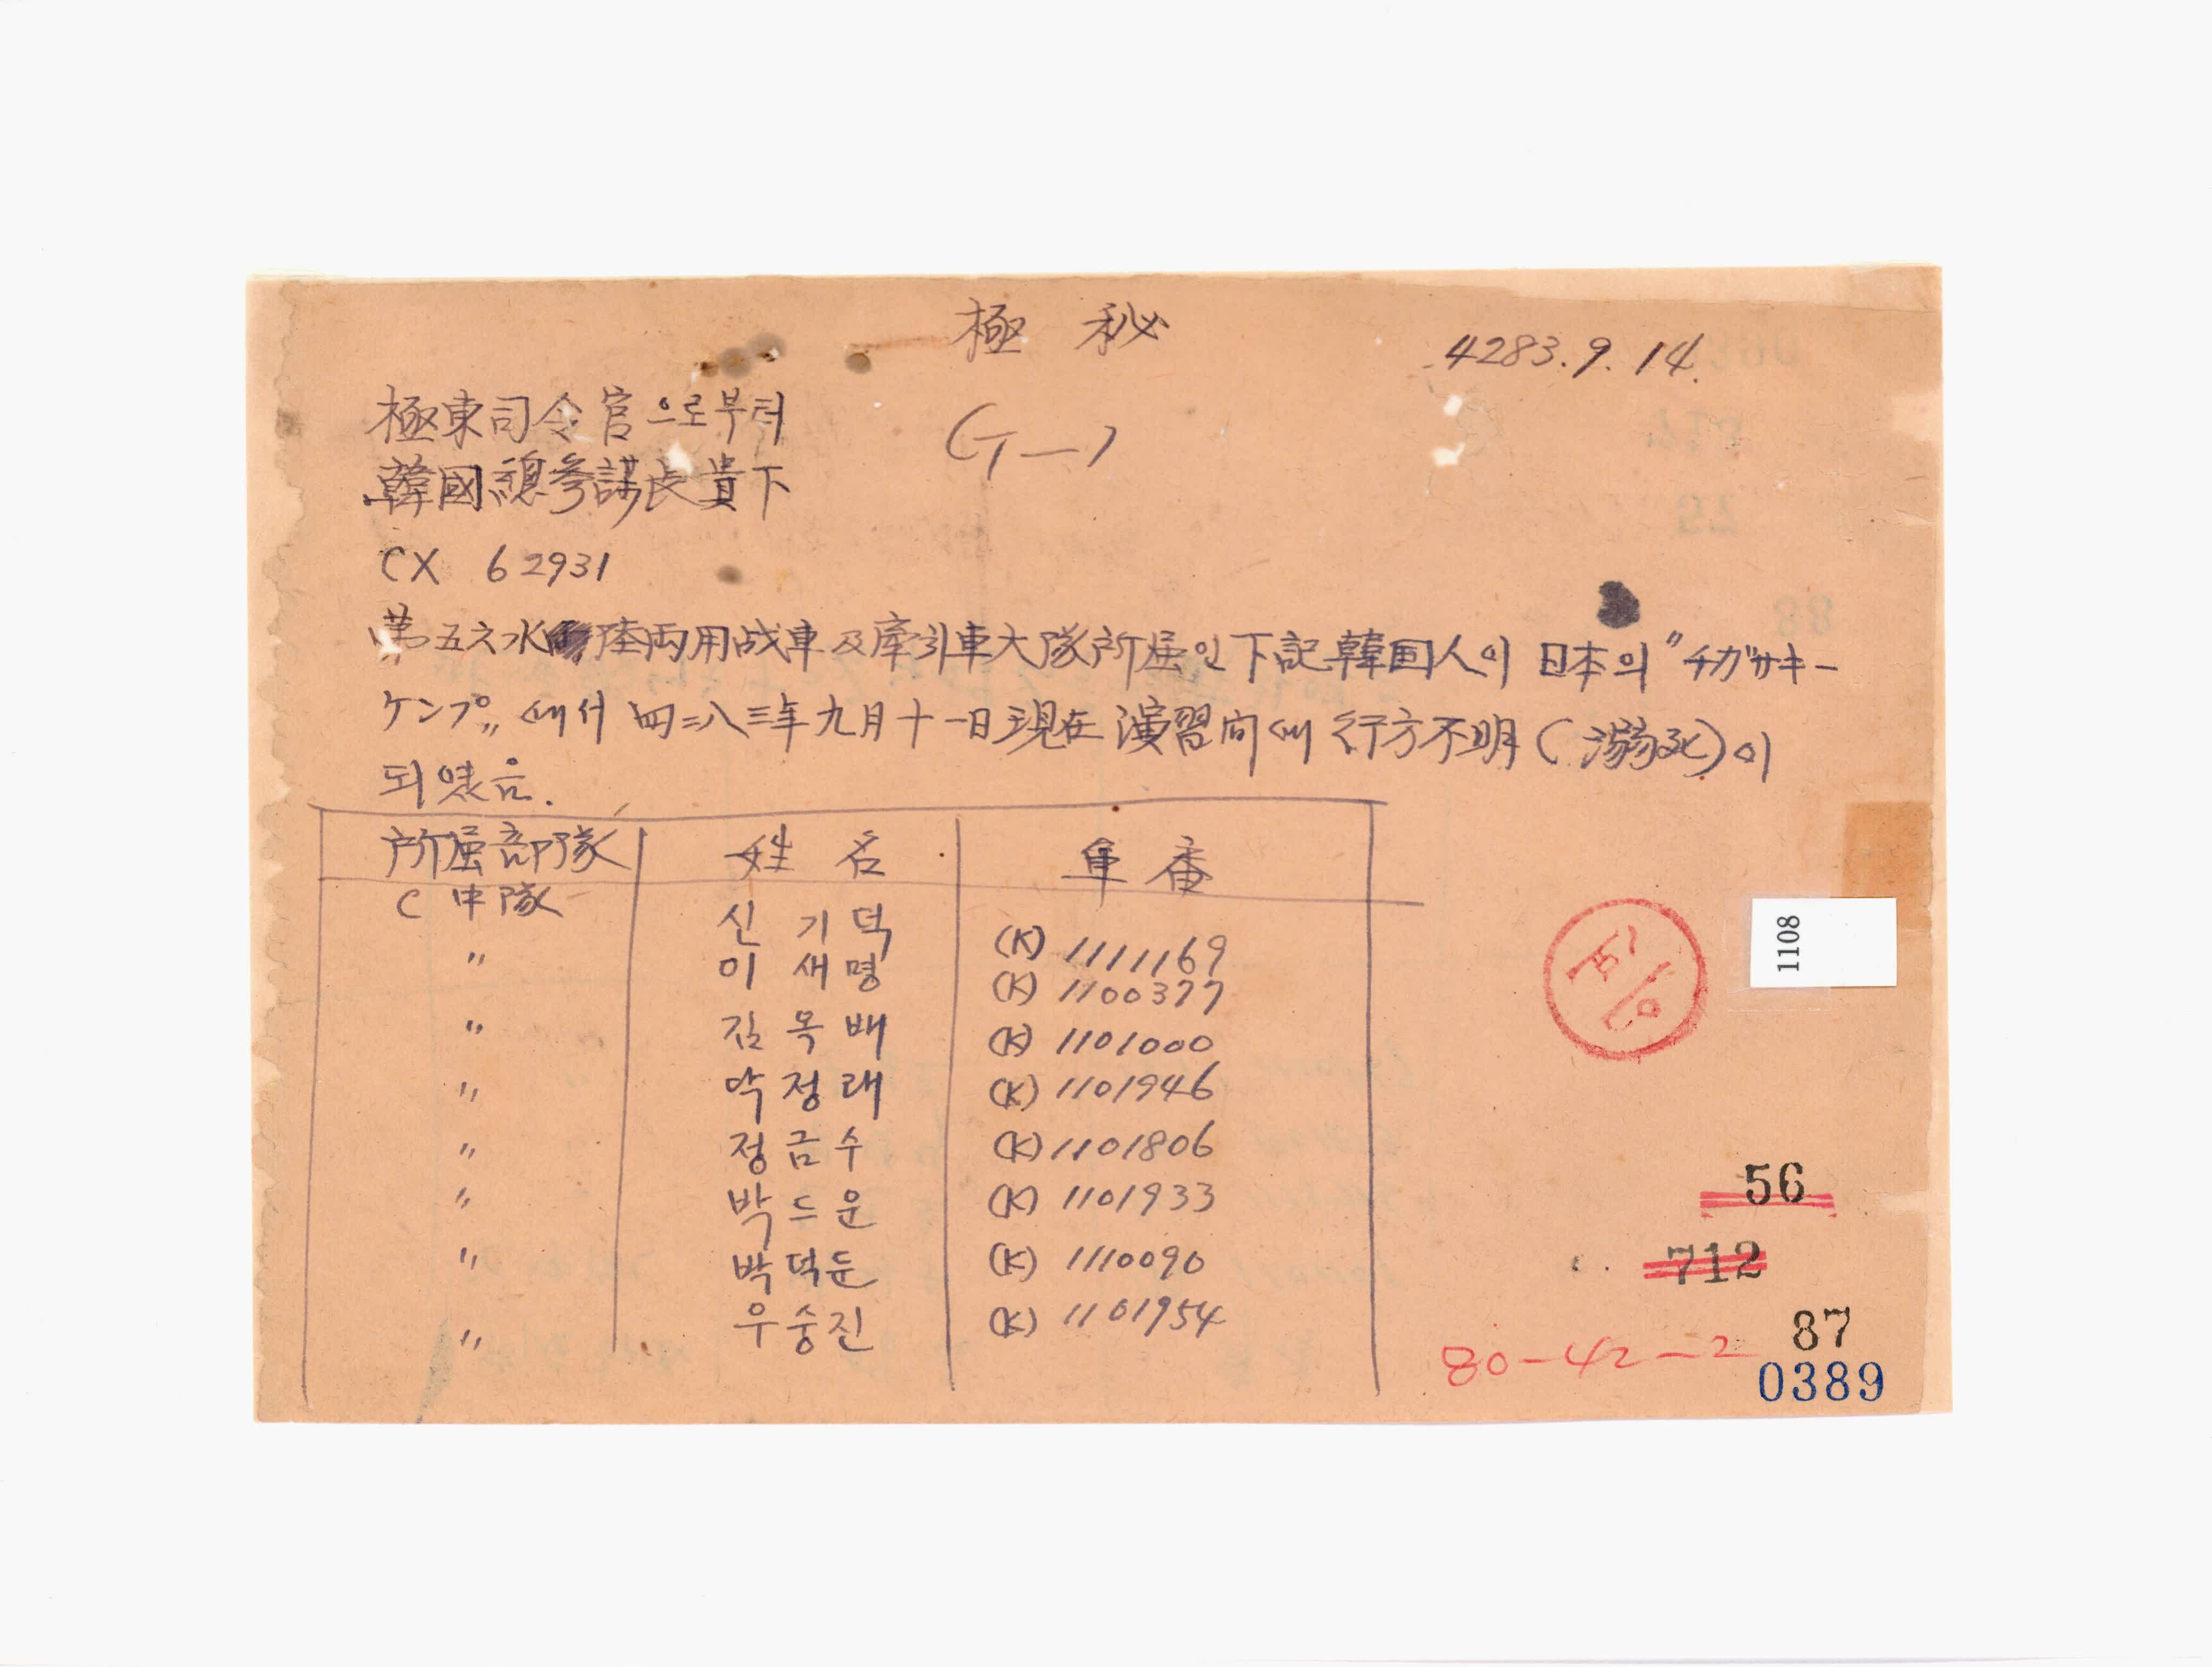 極秘
4283.9.14.
極東司令官으로부터
G-1
韓國總參謀長貴下
CX 62931
第五六水陸両用战車及牽引車大隊所属인下記韓国人이 日本의 "チガサキー
ケンプ„에서 四二八三年九月十一日現在 演習向에 行方不明(溺死)이
되였음.
所属部隊 姓名 軍番
C 中隊 신기덕 (K) 1111169
" 이새명 (K) 1100377
" 김옥배 (K) 1101000
" 박정래 (K) 1101946
" 정금수 (K) 1101806
" 박드운 (K) 1101933
" 박덕둔 (K) 1110090
" 우숭진 (K) 1101954
1108
56
712
87
80-42-2
0389